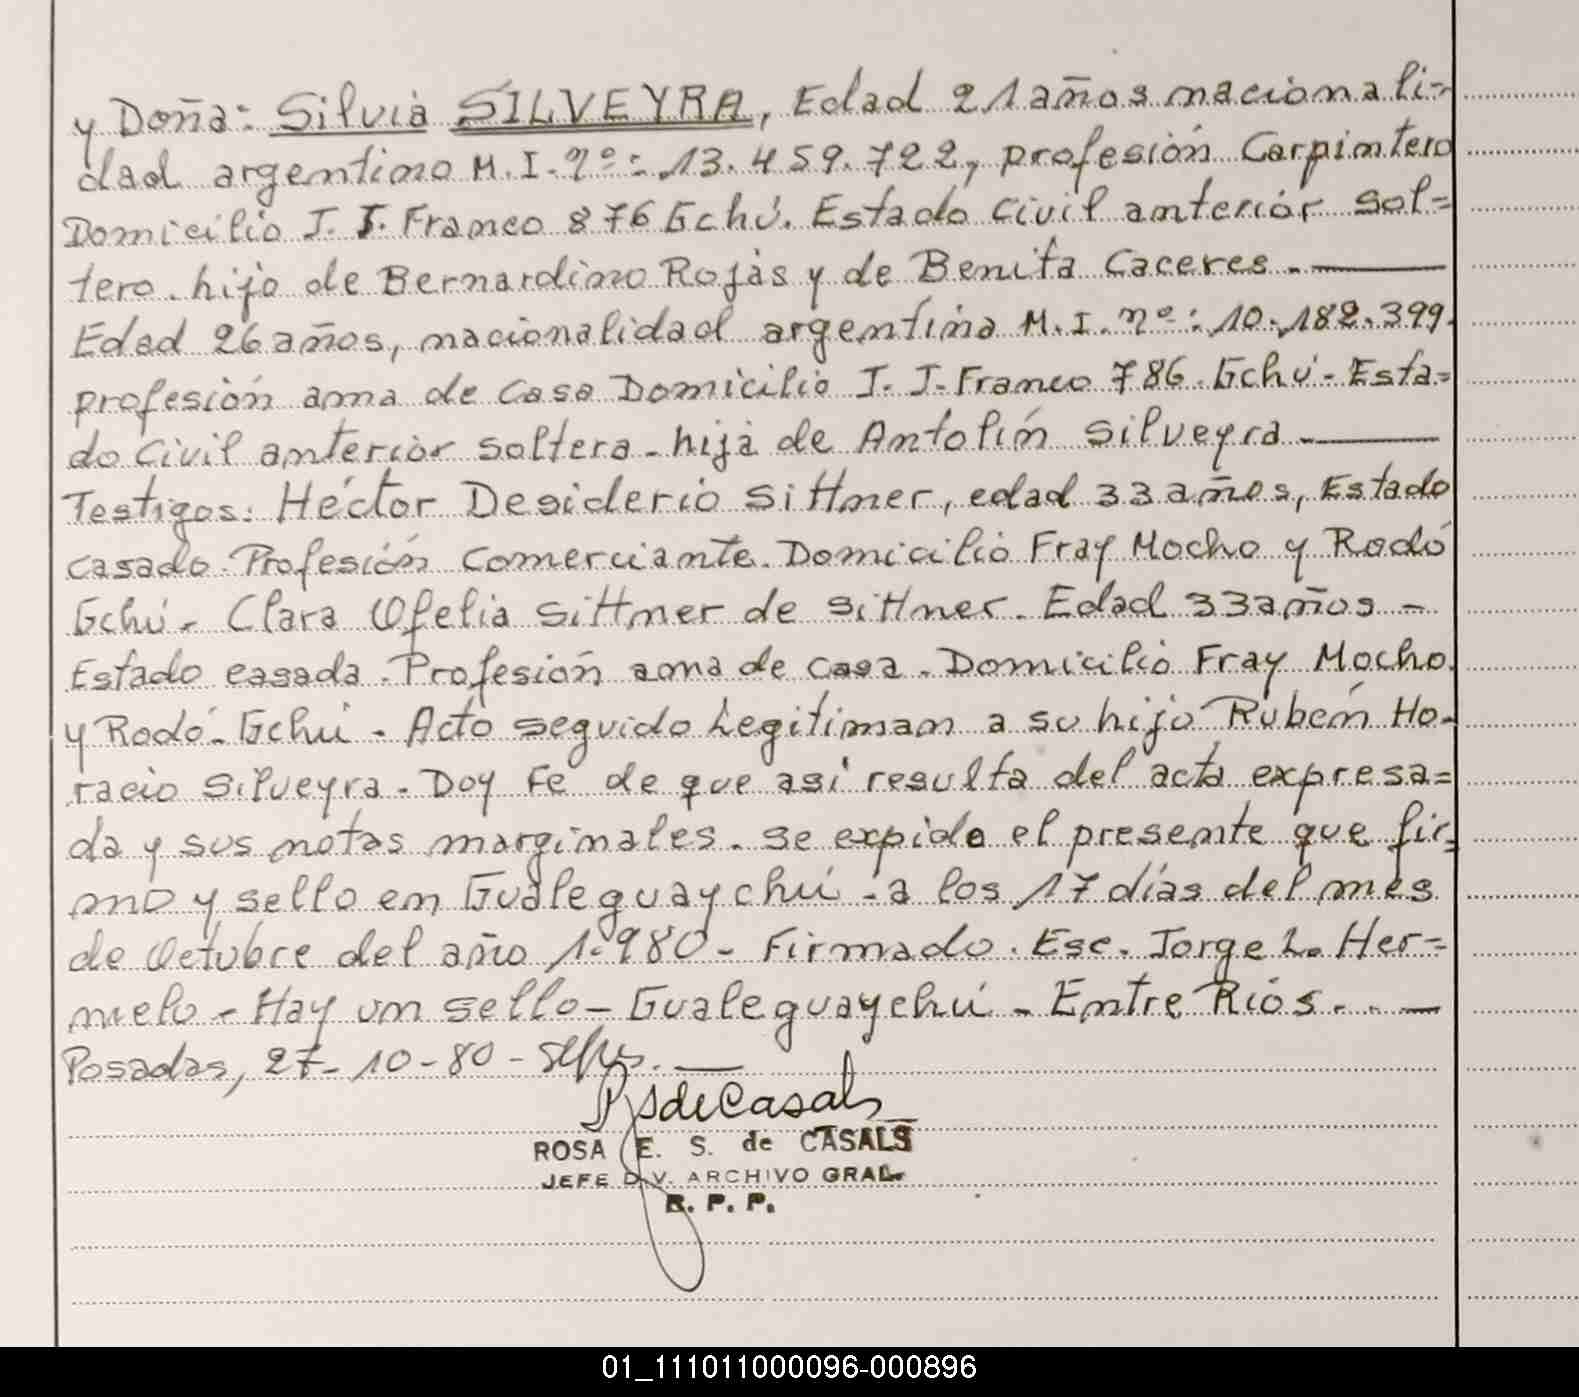 y Doña: Silvia SILVEYRA, Edad 21 años nacionali=
dad argentino M. I. nº: 13.459.722, profesión Carpintero
Domicilio J. J. Franco 876 Gchú. Estado Civil anterior sol=
tero. hijo de Bernardino Rojas y de Benita Caceres.
Edad 26 años, nacionalidad argentina M. I. nº: 10.182.399.
profesión ama de Casa Domicilio J. J. Franco 786. Gchú - Esta=
do Civil anterior soltera - hija de Antolín Silveyra.
Testigos: Héctor Desiderio Sittner, edad 33 años, Estado
casado. Profesión Comerciante. Domicilio Fray Mocho y Rodó
Gchú - Clara Ofelia Sittner de Sittner. Edad 33 años -
Estado casada. Profesión ama de casa. Domicilio Fray Mocho.
y Rodó - Gchú - Acto seguido Legitiman a su hijo Rubén Ho-
racio Silveyra. Doy Fe de que así resulta del acta expresa=
da y sus notas marginales. se expide el presente que fir=
mo y sello en Gualeguaychú - a los 17 días del mes
de Octubre del año 1.980 - Firmado. Esc. Jorge L. Her=
melo - Hay un sello - Gualeguaychú - Entre Ríos. . -
Posadas, 27-10-80 -
ROSA E. S. de CASALS
JEFE DIV. ARCHIVO GRAL.
R. P. P.
01_111011000096-000896